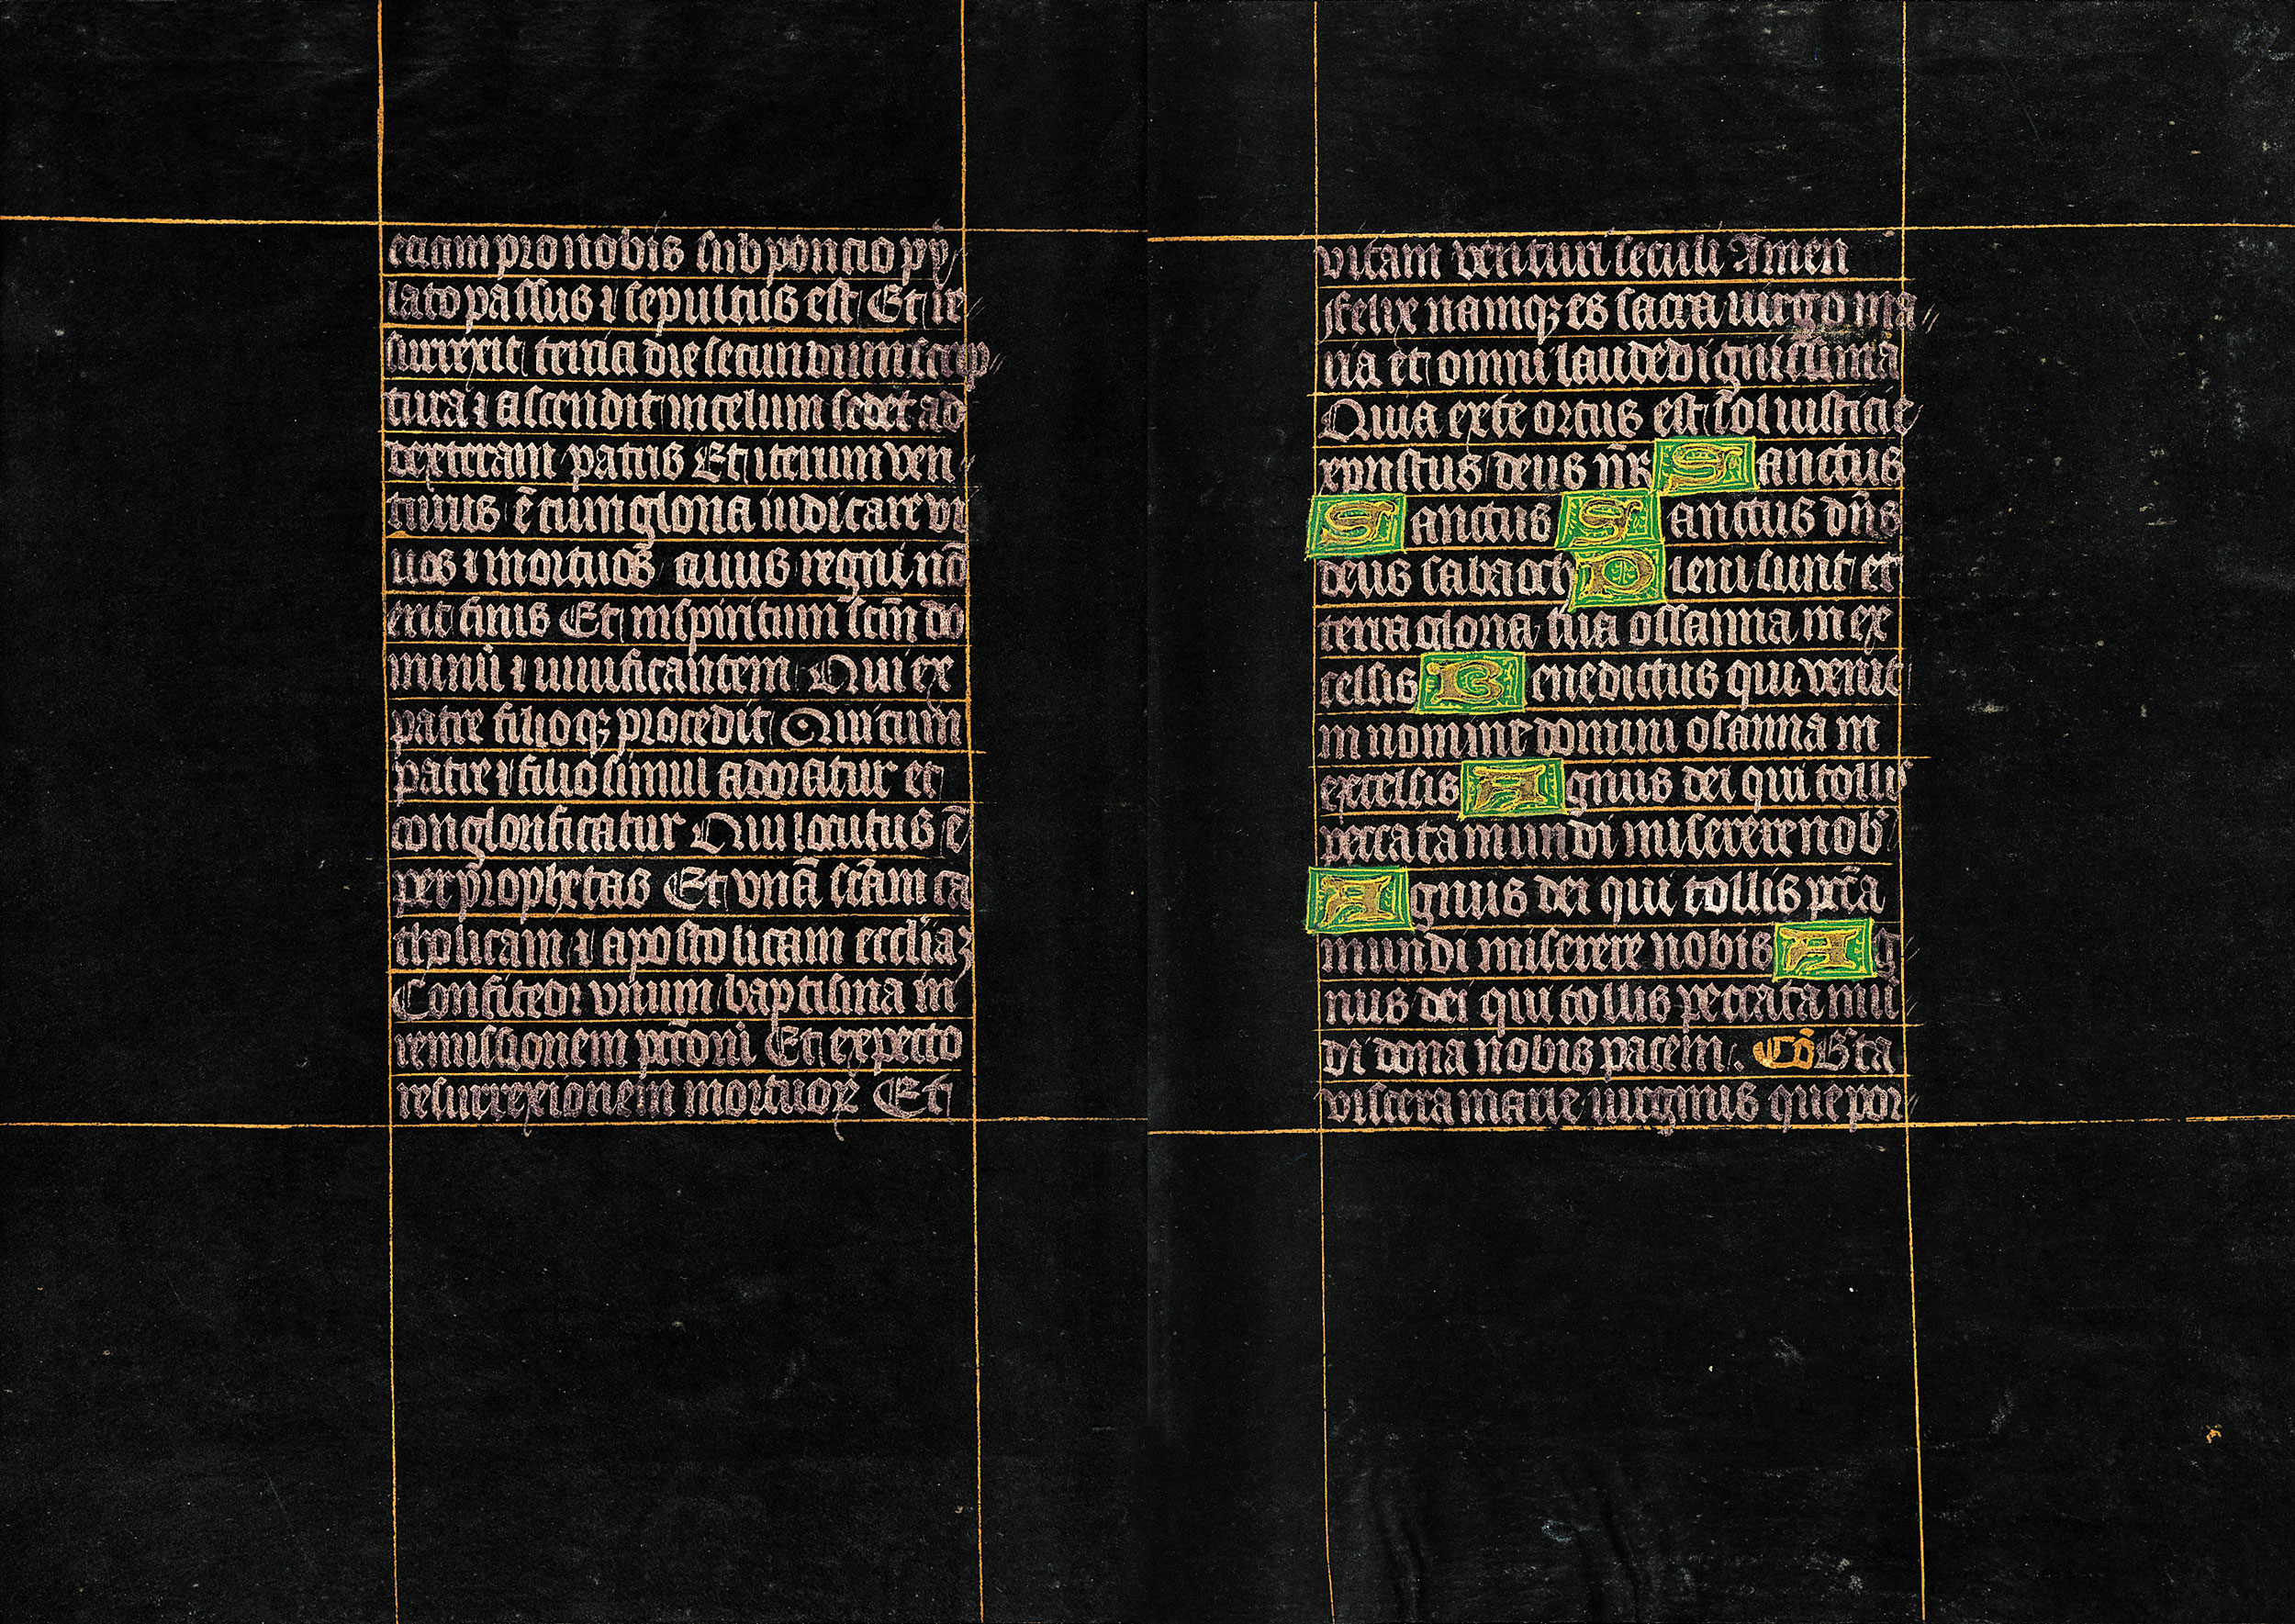 etiam pro nobis sub poncio py
lato passus ⁊ sepultus est Et re
surrexit tercia die secundum scrip
tura ⁊ ascendit in celum sedet ad
dexteram patris Et iterum ven
turus ē cum gloria iudicare vi
uos ⁊ mortuos cuius regni nō
erit finis Et in spiritum scm̄ do
minū ⁊ viuificantem Qui ex
patre filioqꝫ procedit Qui cum
patre ⁊ filio simul adoratur et
conglorificatur Qui locutus ē
per prophetas Et vnā scām ca
tholicam ⁊ apostolicam eccliaꝫ
Confiteor vnum baptisma in
remissionem pctorū Et expecto
resurrexionem mortuoꝝ Et
vitam venturi seculi Amen
ffelix namqꝫ es sacra uirgo ma
ria et omni laude dignissima
Quia ex te ortus est sol iusticie
xpristus deus nr̄ Sanctus
Sanctus Sanctus dn̄s
deus sabaoth Pleni sunt et
terra gloria tua ossanna in ex
celsis Benedictus qui venit
in nomine domini osanna in
excelsis Agnus dei qui tollis
peccata mundi miserere nob
Agnus dei qui tollis pctā
mundi miserere nobis Ag
nus dei qui tollis peccata mū
di dona nobis pacem. Cō Bta
viscera marie uirginis que por